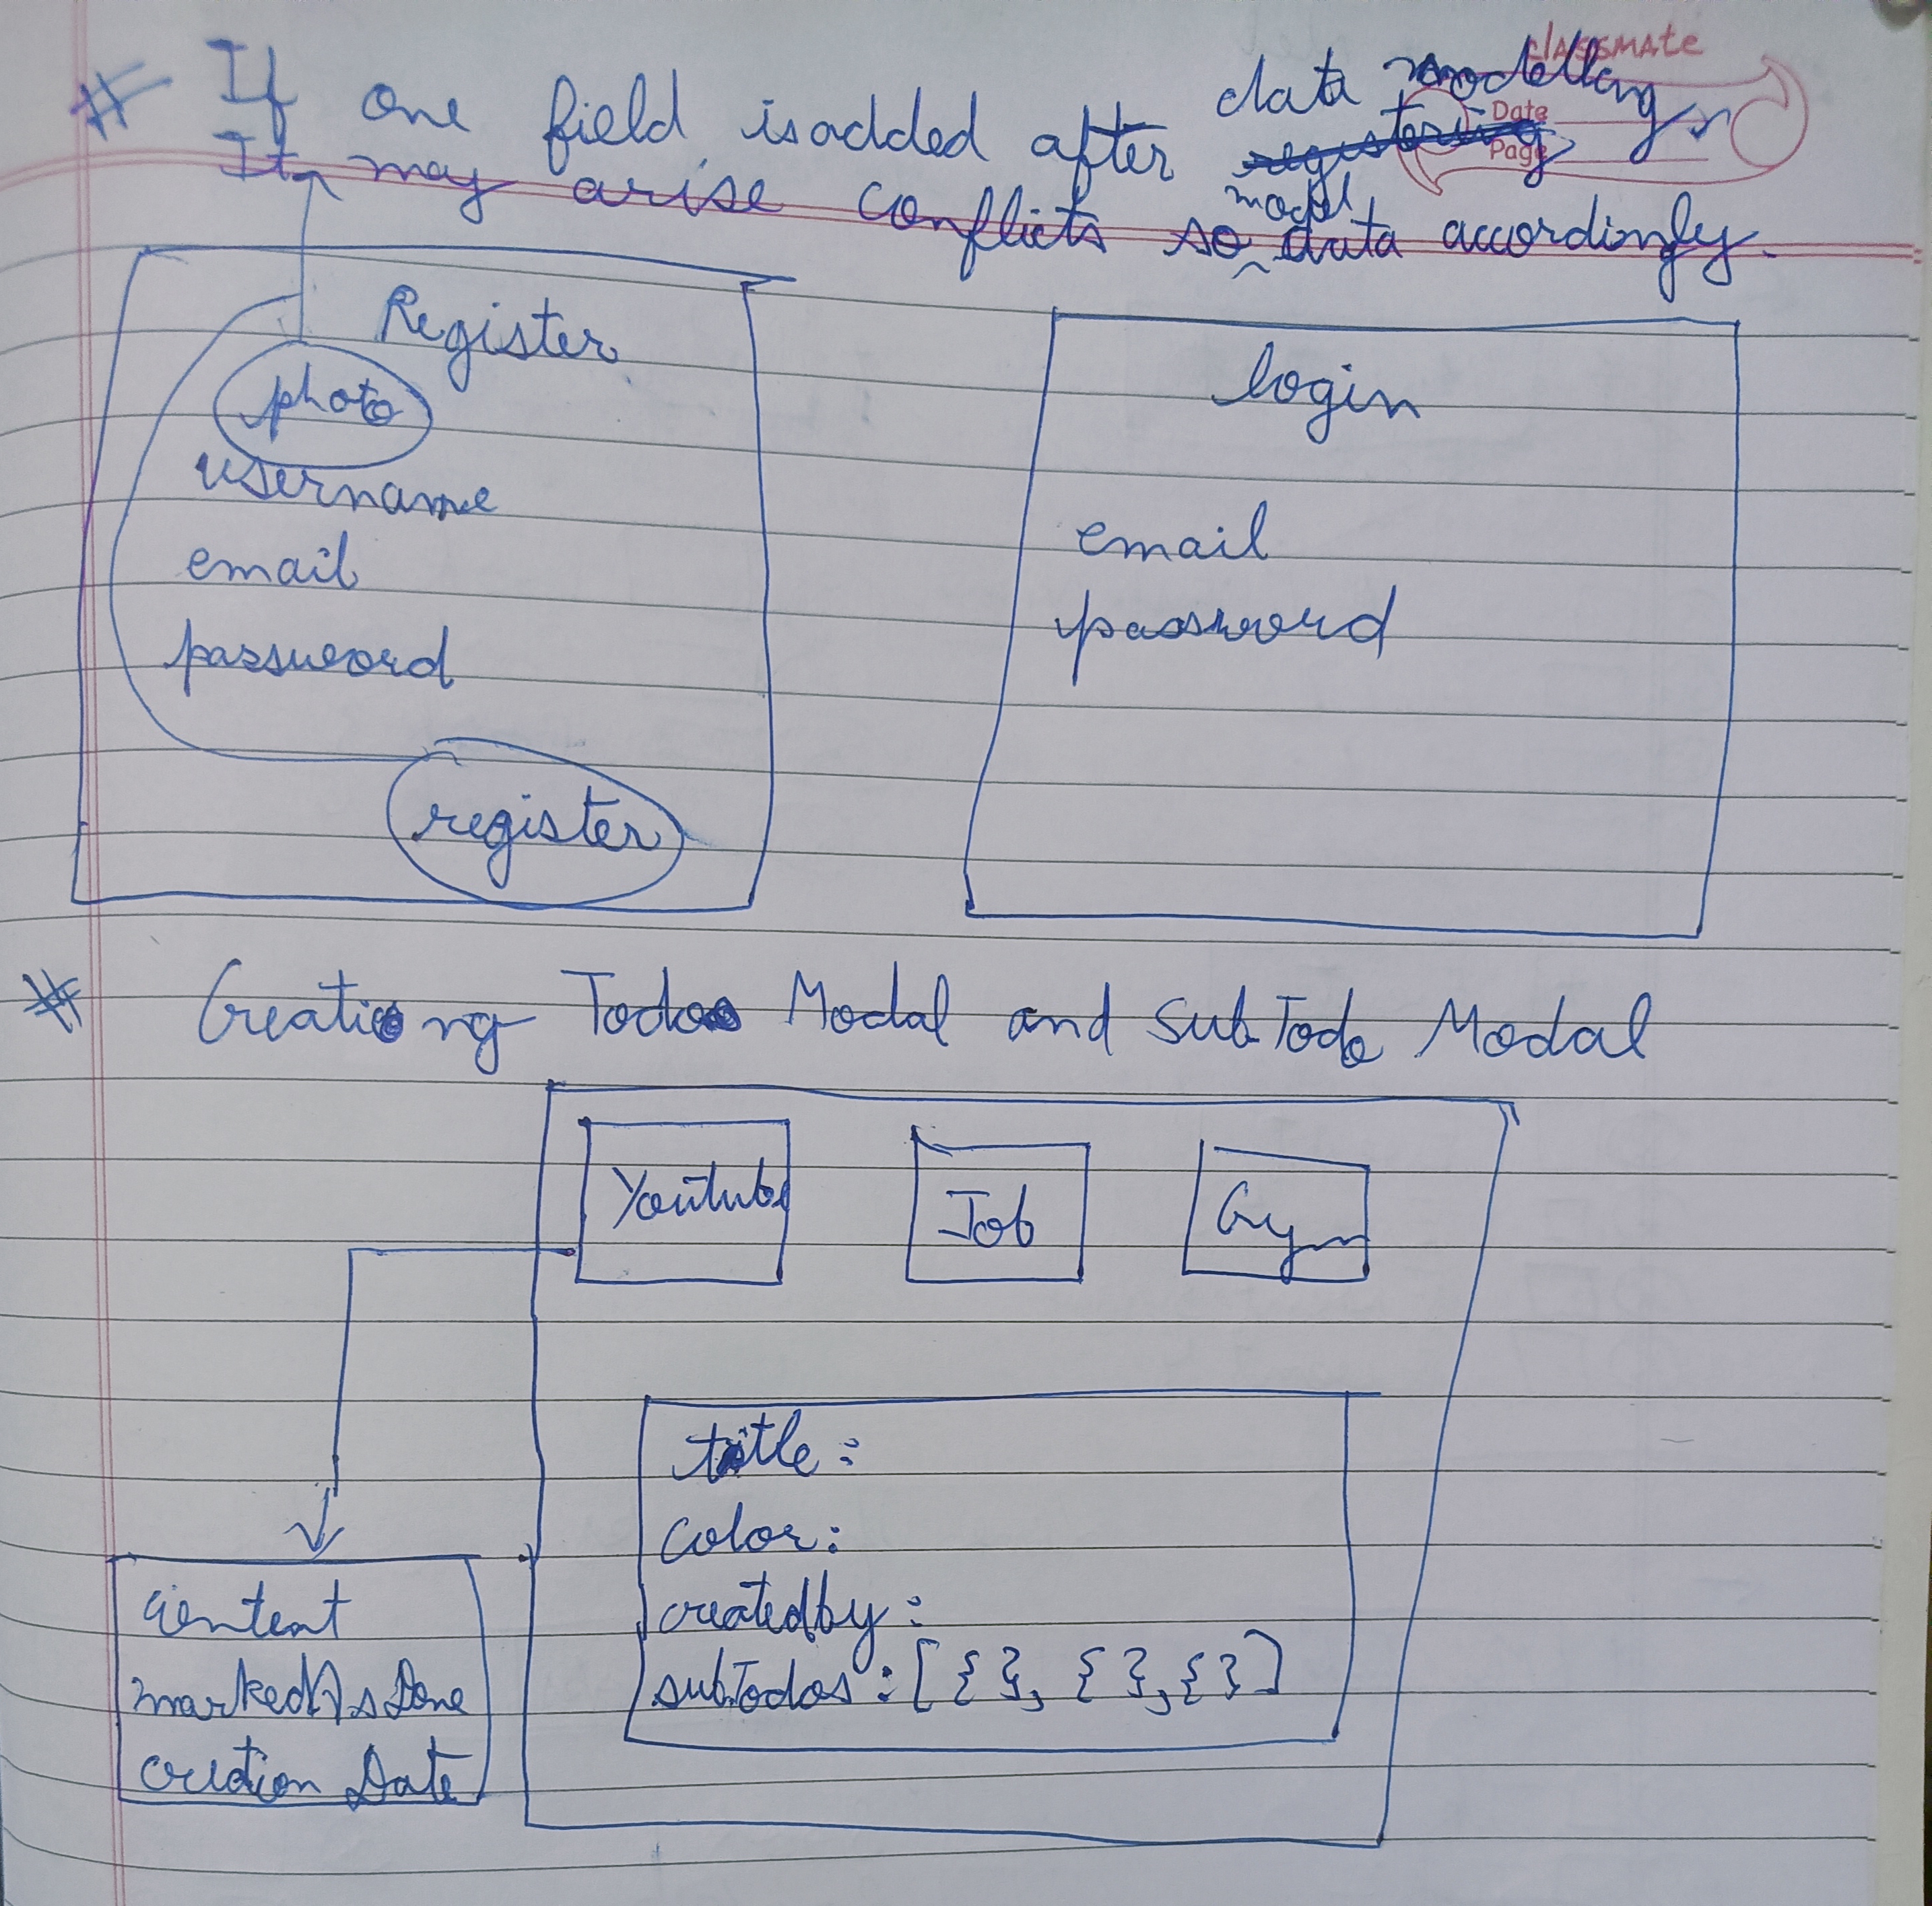 classmate
Date
Page
# If one field is added after data modelling,
It may arise conflicts so model data accordingly.
Register
photo
username
email
password
register
login
email
password
# Creating Todos Modal and SubTodo Modal
Youtube
Job
Gym
title:
color:
createdby:
subTodos: [ { }, { }, { } ]
Content
markedAsDone
creation Date